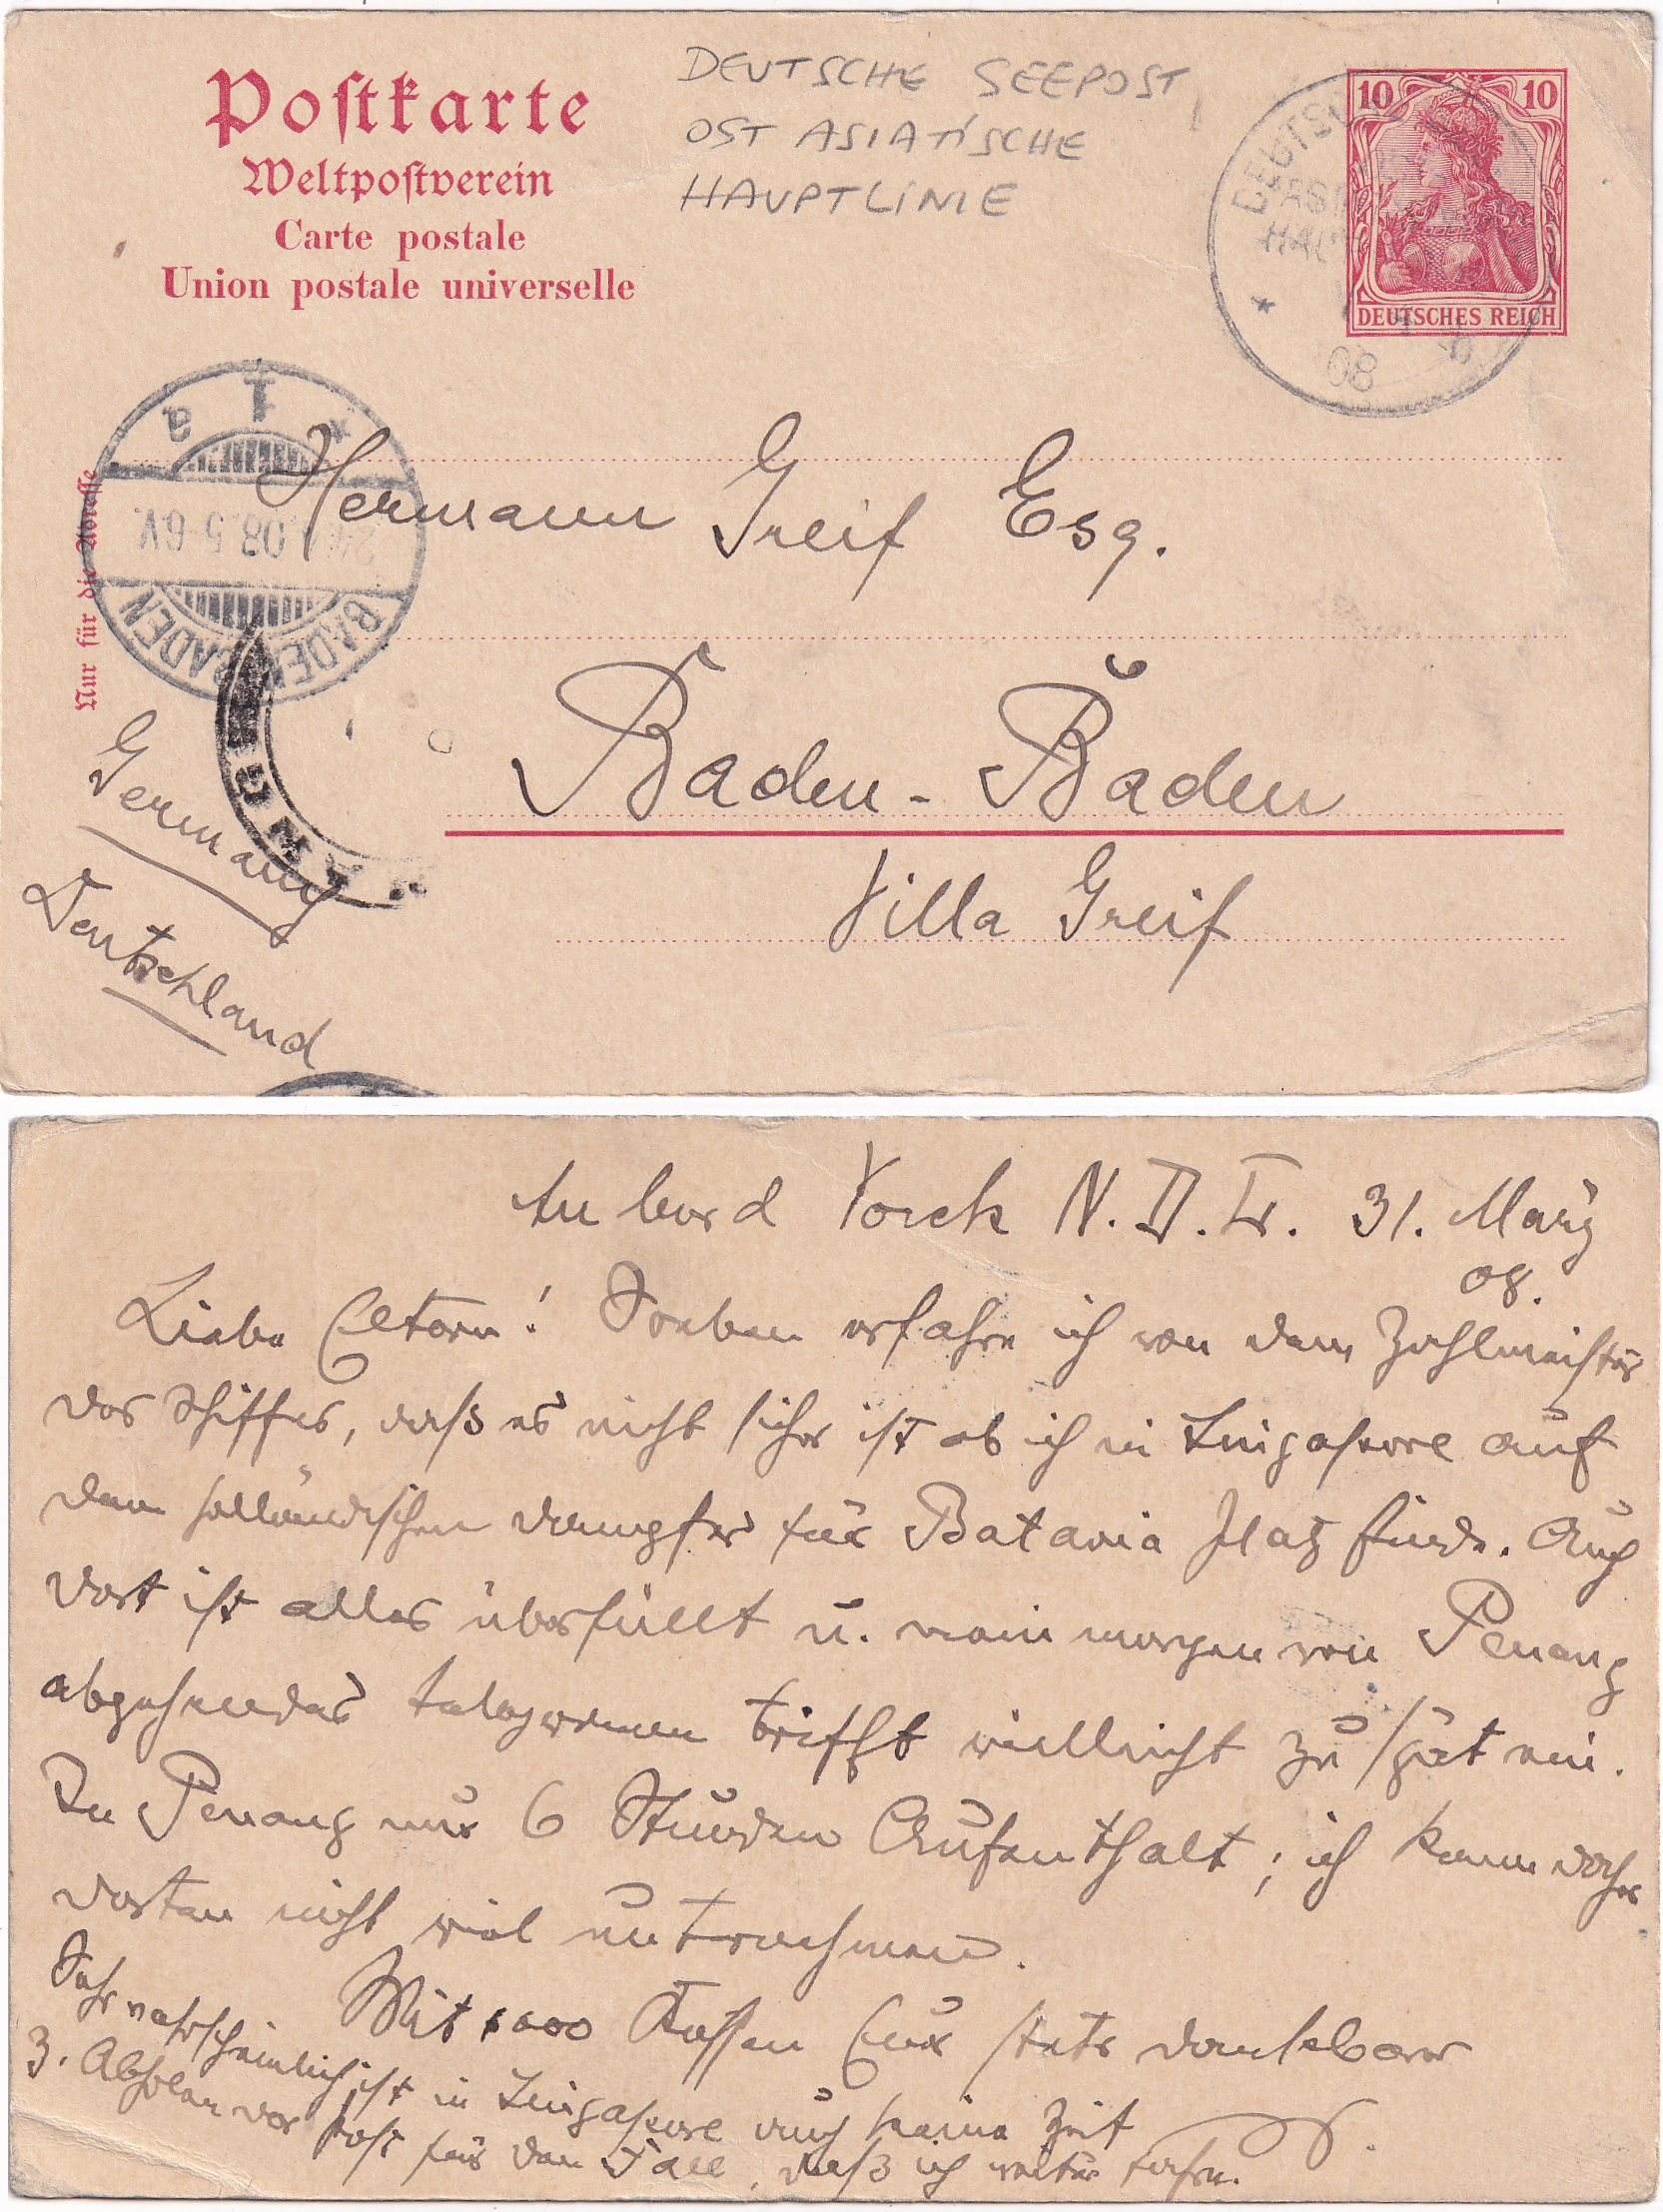 Postkarte
Weltpostverein
Carte postale
Union postale universelle
DEUTSCHE SEEPOST
OST ASIATISCHE
HAUPTLINIE
10 10
DEUTSCHES REICH
08
Nur für die Adresse
BADEN BADEN
08.5-6V.
Hermann Greif Esq.
Baden-Baden
Villa Greif
Germany
Deutschland
An bord Yorck N.D.L. 31. März
08.
Liebe Eltern! Soeben erfahre ich von dem Zahlmeister
des Schiffes, daß es nicht sicher ist ob ich in Singapore auf
dem holländischen Dampfer für Batavia Platz finde. Auch
dort ist alles überfüllt u. mein morgen von Penang
abgehendes Telegramm trifft vielleicht zu spät ein.
In Penang nur 6 Stunden Aufenthalt; ich kann daher
dorten nicht viel unternehmen.
Mit 1000 Küssen Euer stets dankbarer
Sehr wahrscheinlich ist in Singapore auch keine Zeit
z. Abholen der Post für den Fall, daß ich weiter fahre.